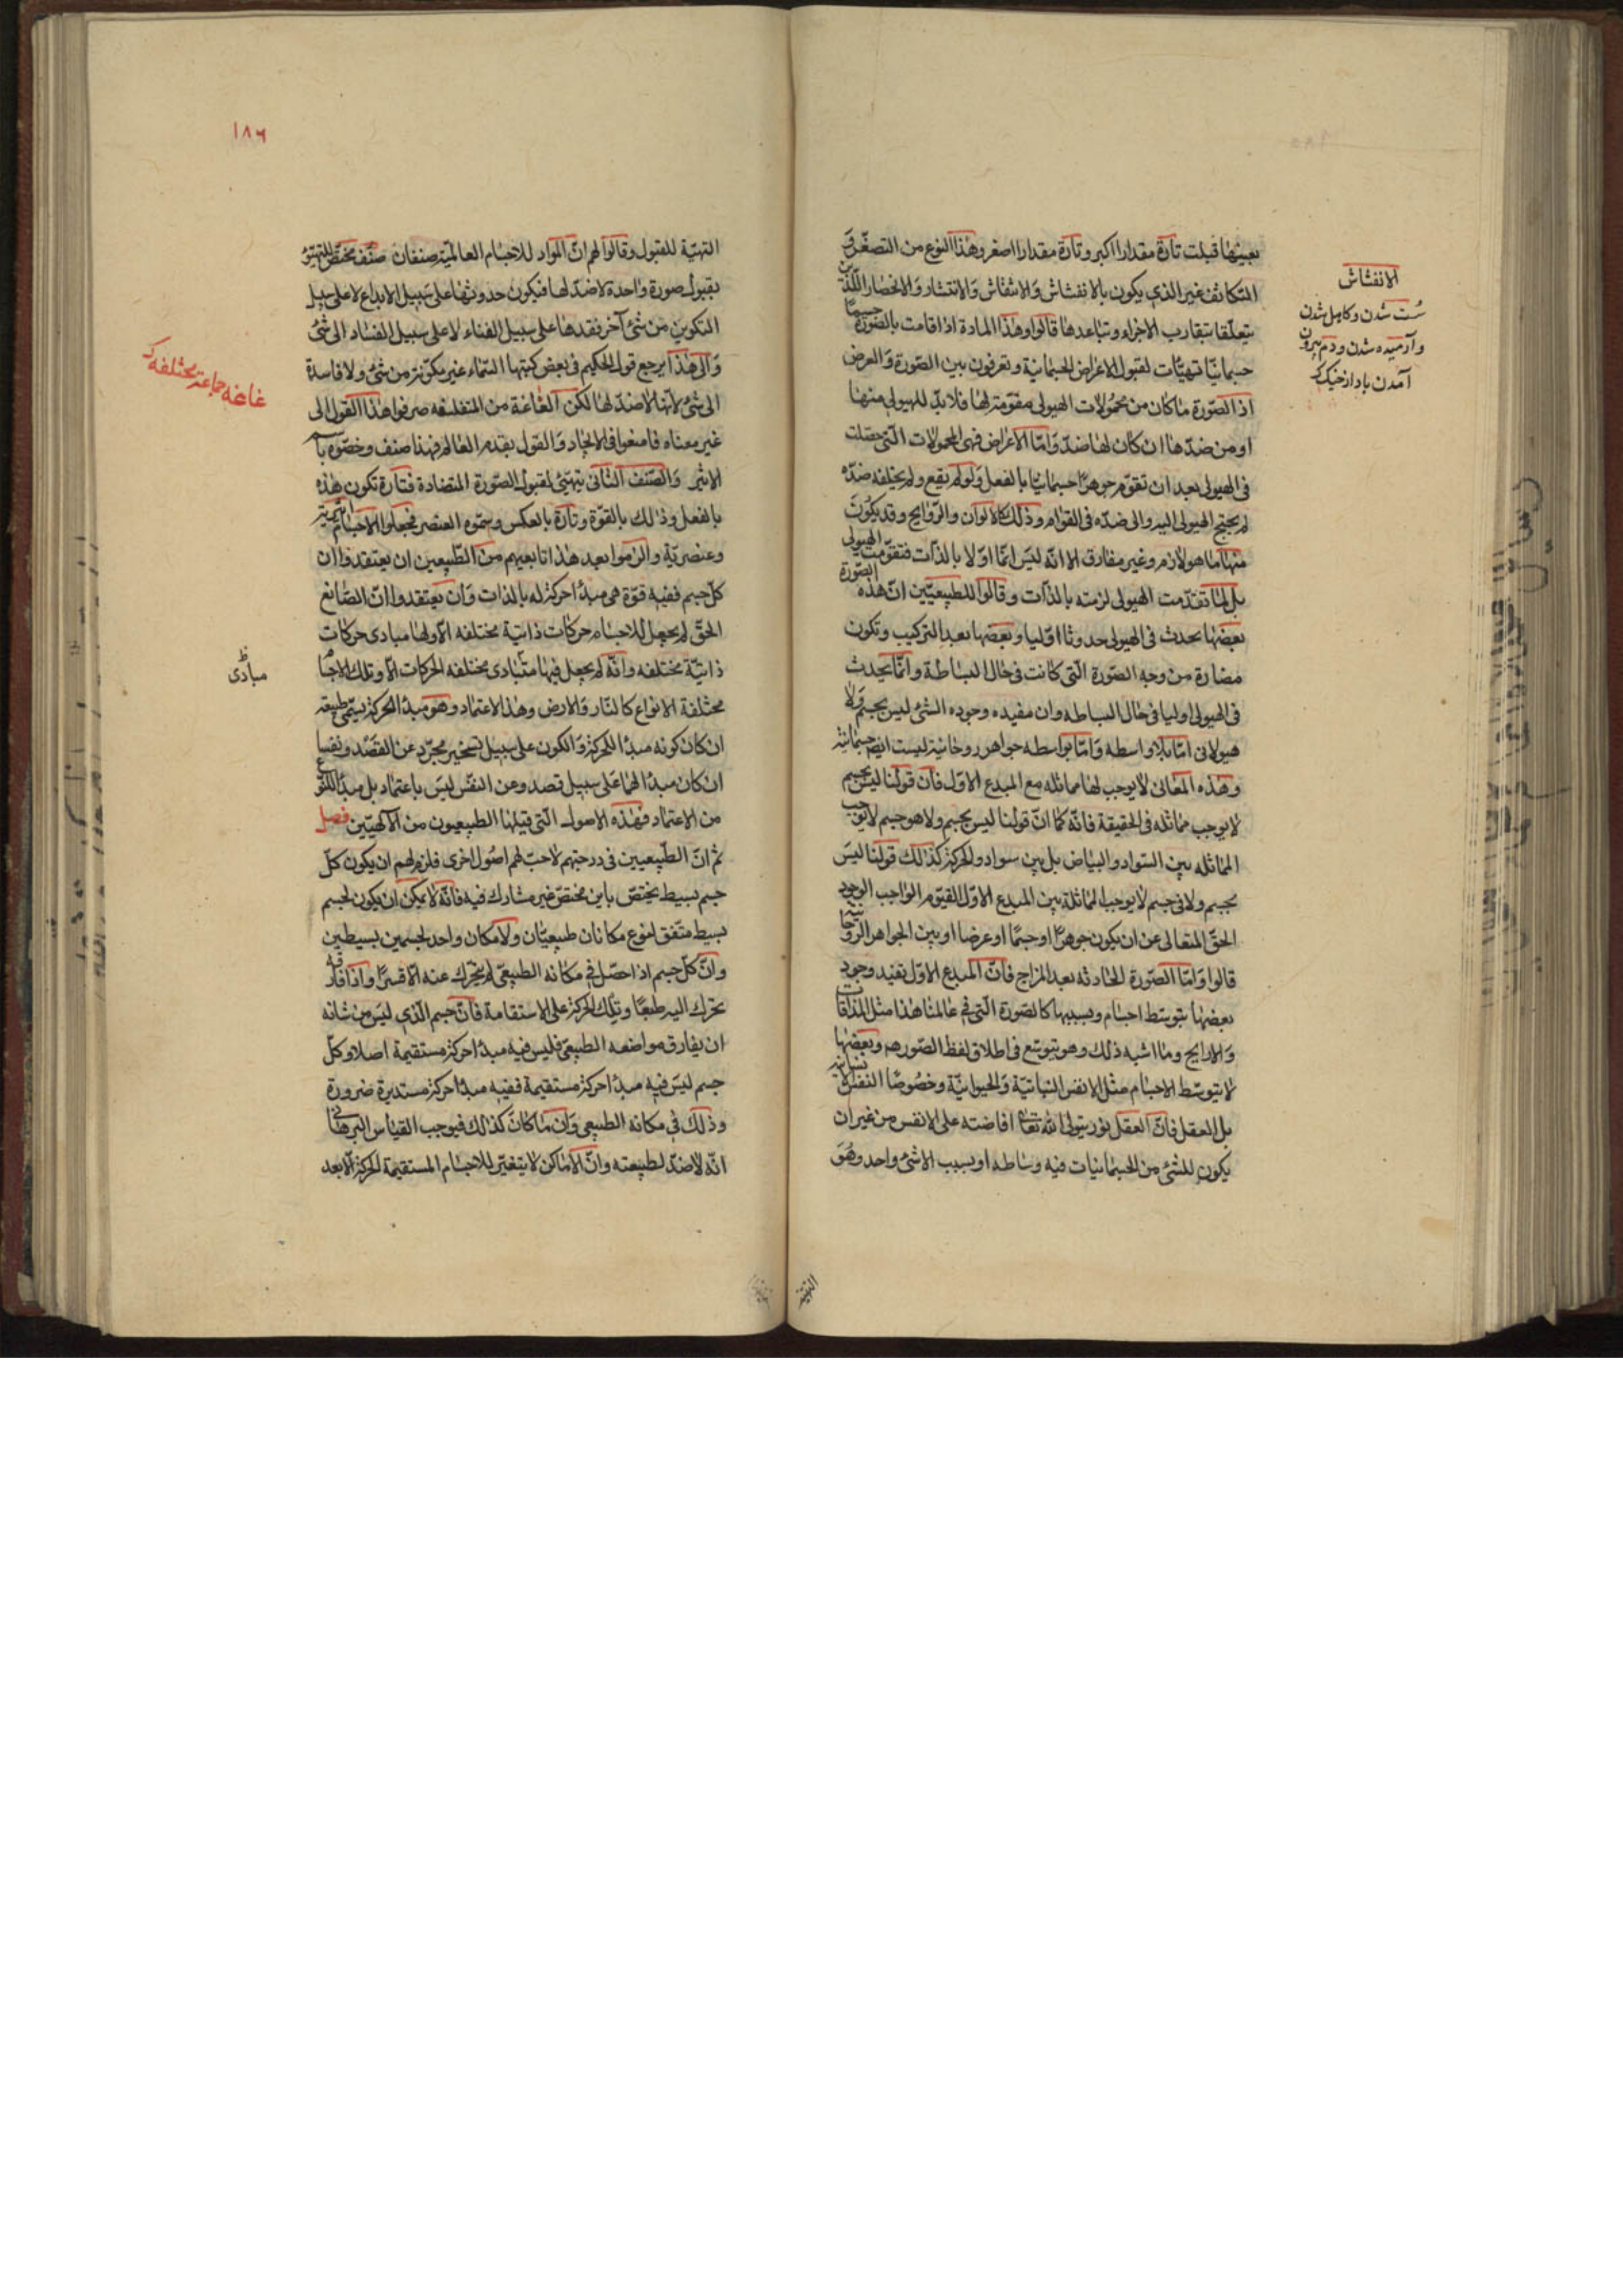 بعينها قبلت تارة مقدارا اكبر وتارة مقدارا اصغر وهذا النوع من التصغّر و
التكاثف غير الذي يكون بالانفشاش والانتفاش والانتشار والانحصار اللّذين
يتعلّقا بتقارب الاجزاء وتباعدها قالوا وهذا المادة اذا قامت بالصورة جسما
جسمانيّا تهيّات لقبول الاعراض الجسمانية ويفرقون بين الصّورة والعرض
اذ الصّورة ما كان من محمولات الهيولى مقوّمة لها فلا بدّ للهيولى منها
او من ضدّها ان كان لها ضدّ وامّا الاعراض فهى المحمولات الّتى حصلت
فى الهيولى بعد ان تقوّم جوهرًا جسمانيّا بالفعل ولو لم يقع ولم يخلفه ضدّه
لم يحتج الهيولى اليه والى ضدّه فى القوام وذلك كالالوان والرّوايح وقد يكون
منها ما هو لازم وغير مفارق الا انّه ليس انمّا اوّلا بالذّات فتقوّمت الهيولى
بل لما تقدّمت الهيولى لزمته بالذّات وقالوا للطبيعيّين انّ هذه الصّورة
بعضها يحدث فى الهيولى حدوثا اوّليا وبعضها بعد التركيب وتكون
مضارة من وجه الصّورة الّتى كانت فى حال البساطة وانمّا يحدث
فى الهيولى اوليا فى حال البساطه وان مفيده وجوده الشئ ليس بجسم ولا
هيولانى امّا بلا واسطه وامّا بواسطه جواهر روحانية ليست ايضا جسمانية
وهذه المعانى لا يوجب لها مماثله مع المبدع الاوّل فان قولنا ليس بجسم
لا يوجب مماثله فى الحقيقة فانّه كما انّ قولنا ليس بجسم ولا هو جسم لا يوجب
المماثله بين السّواد والبياض بل بين سواد والحركة كذلك قولنا ليس
بجسم ولا فى جسم لا يوجب المماثلة بين المبدع الاوّل القيّوم الواجب الوجود
الحقّ المتعالى عن ان يكون جوهرًا او جسمًا او عرضا او بين الجواهر الروحانية
قالوا وامّا الصّورة الحادثه بعد المزاج فانّ المبدع الاوّل تفيد وجود
بعضها بتوسّط اجسام وبسببها كالصّورة الّتى فى عالمنا هذا مثل المذاقات
والارايح وما اشبه ذلك وهو يتوسّع فى اطلاق لفظ الصّور هم وبعضها
لا بتوسّط الاجسام مثل الانفس النباتيّة والحيوانيّة وخصُوصًا النفس الانسانية
بل العقل فانّ العقل نور يتولى الله تعالى افاضته على الانفس من غير ان
يكون للشئ من الجسمانيات فيه وساطه او بسبب الا شئ واحد وهُوَ
التهيّة
الانفشاش
سُست شدن وكاهل شدن
وآرميده شدن ودم بيرون
آمدن باد از خيك ك
١٨٦
التهيّة للقبول وقالوا لهم انّ المواد للاجسام العالميّة صنفان صنف مختصّ للتهيّؤ
بقبول صورة واحدة لا ضدّ لها فيكون حدوثها على سَبيل الابداع لا على سبيل
التكوين من شئ آخر وفقدها على سبيل الفناء لا على سبيل الفساد الى شئ
والى هذا يرجع قول الحكيم فى بعض كتبه انّ السّماء غير مكوّنة من شئ ولا فاسدة
الى شئ لانّها لا ضدّ لها لكن الغاغة من المتفلسفه صرفوا هذا القول الى
غير معناه فامعنوا فى الالحاد والقول بقدم العالم فهذا صنف وخصّوه باسم
الاثير والصّنف الثانى يتهيّئ لقبول الصّورة المتضادة فتارة تكون هذه
بالفعل وذلك بالقوّة وتارة بالعكس وسمّوه العنصر فجعلوا الاجسام اثيرية
وعنصريّة والزموا بعد هذا تابعيهم من الطّبيعين ان يعتقدوا ان
كلّ جسم ففيه قوّة هى مبدأ حركة له بالذات وان يعتقدوا انّ الصّانع
الحقّ لم يجعل للاجسام حركات ذاتيّة مختلفه الّا ولها مبادى حركات
ذاتيّة مختلفه وانّه لم يجعل فيها متبادى مختلفه الحركات الّا وتلك الاجسام
مختلفة الانواع كالنّار والارض وهذا الاعتماد وهو مبدأ الحركة يسمّى طبيعة
ان كان كونه مبدأ للحركة والكون على سبيل تسخير مجرّد عن القصد ونفسا
ان كان مبدأ لهما على سبيل قصد وعن النفس ليس باعتماد بل مبدأ لنوع
من الاعتماد فهذه الاصول الّتى قبلها الطبيعيون من الآلهيّين فصل
ثم انّ الطّبيعيين فى درجتهم لاحت لهم اصُول اخرى فلزم لهم ان يكون كلّ
جسم بسيط يختصّ باين مختصّ غير مشارك فيه فانّه لا يمكن ان يكون لجسم
بسيط متّفق لنوع مكانان طبيعيّان ولا مكان واحد لجسمين بسيطين
وانّ كلّ جسم اذا حصّل فى مكانه الطبيعىّ لم يتحرّك عنه الّا قسرًا واذا فارقه
تحرّك اليه طبعًا وتلك الحركة على الاستقامة فانّ جسم الّذي ليس من شانه
ان يفارق مواضعه الطبيعىّ فليس فيه مبدأ حركة مستقيمة اصلا وكلّ
جسم ليس فيه مبدأ حركة مستقيمة ففيه مبدأ حركة مستديرة ضرورة
وذلك فى مكانه الطبيعى وان ما كان كذلك فيوجب القياس البرهانى
انّه لا ضدّ لطبيعته وانّ الاماكن لا يتغيّر للاجسام المستقيمة الحركة الّا بعد
غاغه جماعة مختلفه ك
مبادى ظ